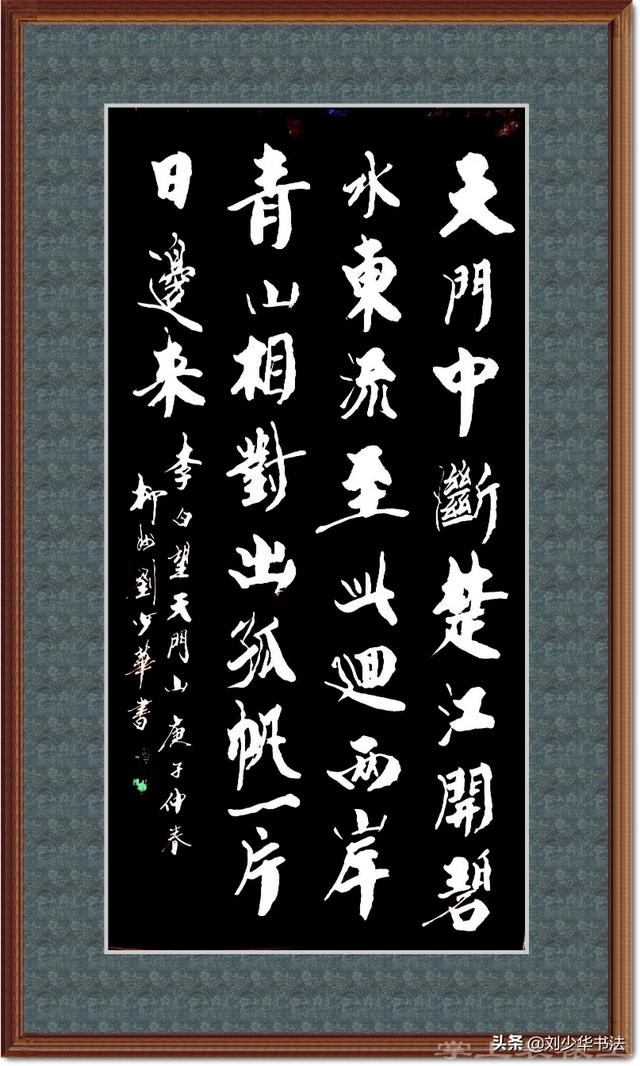 天門中斷楚江開碧
水東流至此迴兩岸
青山相對出孤帆一片
日邊来
李白望天門山 庚子仲春
柳州劉少華書
头条 @刘少华书法
掌上装裱王